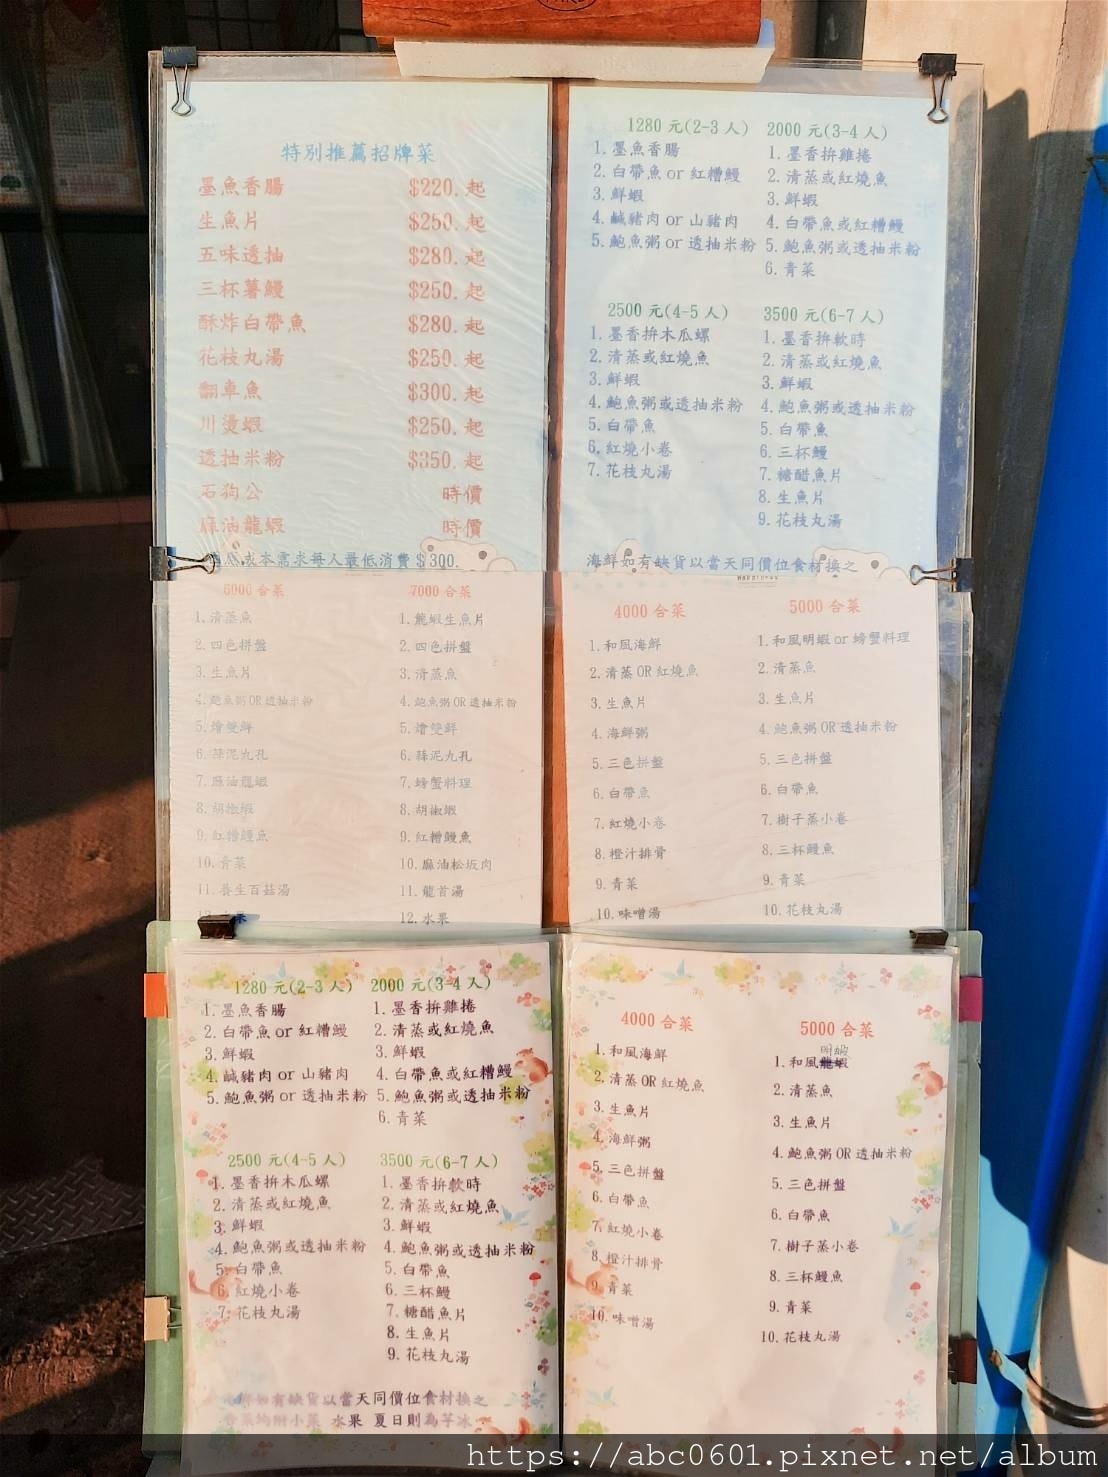 特別推薦招牌菜
墨魚香腸 $220.起
生魚片 $250.起
五味透抽 $280.起
三杯薯鰻 $250.起
酥炸白帶魚 $280.起
花枝丸湯 $250.起
翻車魚 $300.起
川燙蝦 $250.起
透抽米粉 $350.起
石狗公 時價
麻油龍蝦 時價
本需求每人最低消費$300.
1280元(2-3人)
1.墨魚香腸
2.白帶魚or紅糟鰻
3.鮮蝦
4.鹹豬肉or山豬肉
5.鮑魚粥or透抽米粉
2000元(3-4人)
1.墨香拚雞捲
2.清蒸或紅燒魚
3.鮮蝦
4.白帶魚或紅糟鰻
5.鮑魚粥或透抽米粉
6.青菜
2500元(4-5人)
1.墨香拚木瓜螺
2.清蒸或紅燒魚
3.鮮蝦
4.鮑魚粥或透抽米粉
5.白帶魚
6.紅燒小卷
7.花枝丸湯
3500元(6-7人)
1.墨香拚軟時
2.清蒸或紅燒魚
3.鮮蝦
4.鮑魚粥或透抽米粉
5.白帶魚
6.三杯鰻
7.糖醋魚片
8.生魚片
9.花枝丸湯
海鮮如有缺貨以當天同價位食材換之
6000合菜
1.清蒸魚
2.四色拼盤
3.生魚片
4.鮑魚粥OR透抽米粉
5.燴雙鮮
6.蒜泥九孔
7.麻油龍蝦
8.胡椒蝦
9.紅糟鰻魚
10.青菜
11.養生百菇湯
12.水果
7000合菜
1.龍蝦生魚片
2.四色拼盤
3.清蒸魚
4.鮑魚粥OR透抽米粉
5.燴雙鮮
6.蒜泥九孔
7.螃蟹料理
8.胡椒蝦
9.紅糟鰻魚
10.麻油松坂肉
11.龍首湯
12.水果
4000合菜
1.和風海鮮
2.清蒸OR紅燒魚
3.生魚片
4.海鮮粥
5.三色拼盤
6.白帶魚
7.紅燒小卷
8.橙汁排骨
9.青菜
10.味噌湯
5000合菜
1.和風明蝦or螃蟹料理
2.清蒸魚
3.生魚片
4.鮑魚粥OR透抽米粉
5.三色拼盤
6.白帶魚
7.樹子蒸小卷
8.三杯鰻魚
9.青菜
10.花枝丸湯
1280元(2-3人)
1.墨魚香腸
2.白帶魚or紅糟鰻
3.鮮蝦
4.鹹豬肉or山豬肉
5.鮑魚粥or透抽米粉
2000元(3-4人)
1.墨香拚雞捲
2.清蒸或紅燒魚
3.鮮蝦
4.白帶魚或紅糟鰻
5.鮑魚粥或透抽米粉
6.青菜
2500元(4-5人)
1.墨香拚木瓜螺
2.清蒸或紅燒魚
3.鮮蝦
4.鮑魚粥或透抽米粉
5.白帶魚
6.紅燒小卷
7.花枝丸湯
3500元(6-7人)
1.墨香拚軟時
2.清蒸或紅燒魚
3.鮮蝦
4.鮑魚粥或透抽米粉
5.白帶魚
6.三杯鰻
7.糖醋魚片
8.生魚片
9.花枝丸湯
海鮮如有缺貨以當天同價位食材換之
合菜均附小菜 水果 夏日則為芋冰
4000合菜
1.和風海鮮
2.清蒸OR紅燒魚
3.生魚片
4.海鮮粥
5.三色拼盤
6.白帶魚
7.紅燒小卷
8.橙汁排骨
9.青菜
10.味噌湯
5000合菜
明蝦
1.和風龍蝦
2.清蒸魚
3.生魚片
4.鮑魚粥OR透抽米粉
5.三色拼盤
6.白帶魚
7.樹子蒸小卷
8.三杯鰻魚
9.青菜
10.花枝丸湯
https://abc0601.pixnet.net/album